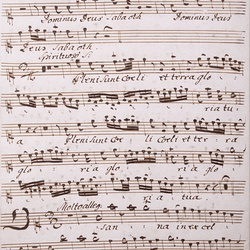 Dominus Deus Sabaoth Dominus Deus
Deus Sabaoth
Spirituoso
Pleni sunt Coeli et terra glo
ria tu
a Pleni sunt Coe li Coeli et terra
glo ria glo ria glo
Molto alleg.
ria tua
san na in excel